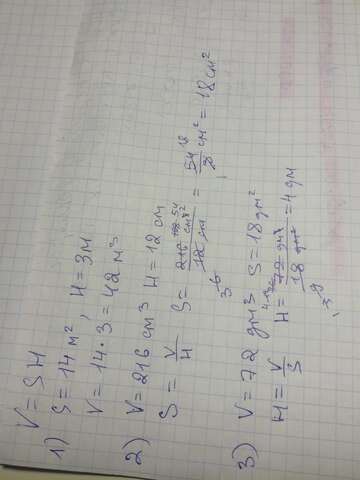 V = SH
1) S = 14 м², H = 3 м
V = 14 · 3 = 42 м³
2) V = 216 см³ H = 12 см
S = V/H S = 216 см³/12 см = 54/3 см² = 18 см²
3) V = 72 дм³ S = 18 дм²
H = V/S H = 72 дм³/18 дм² = 4 дм